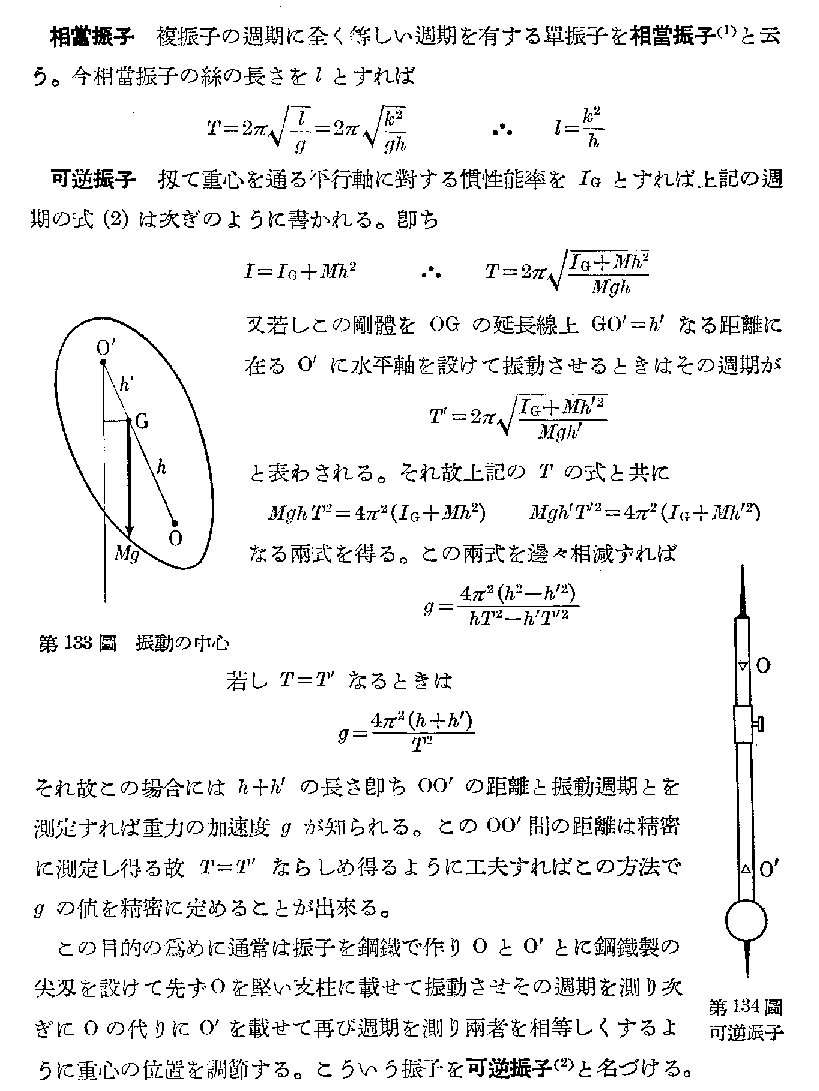 相當振子　複振子の週期に全く等しい週期を有する單振子を相當振子⁽¹⁾と云
う。今相當振子の絲の長さを l とすれば
T=2π√(l/g)=2π√(k²/gh)　∴　l=k²/h
可逆振子　扨て重心を通る平行軸に對する慣性能率を I_G とすれば上記の週
期の式 (2) は次ぎのように書かれる。卽ち
I=I_G+Mh²　∴　T=2π√((I_G+Mh²)/Mgh)
又若しこの剛體を OG の延長線上 GO′=h′ なる距離に
在る O′ に水平軸を設けて振動させるときはその週期が
T′=2π√((I_G+Mh′²)/Mgh′)
と表わされる。それ故上記の T の式と共に
MghT²=4π²(I_G+Mh²)　Mgh′T′²=4π²(I_G+Mh′²)
なる兩式を得る。この兩式を邊々相減ずれば
g=4π²(h²−h′²)/(hT²−h′T′²)
O′
h′
G
h
O
Mg
第 133 圖　振動の中心
若し T=T′ なるときは
g=4π²(h+h′)/T²
それ故この場合には h+h′ の長さ卽ち OO′ の距離と振動週期とを
測定すれば重力の加速度 g が知られる。この OO′ 間の距離は精密
に測定し得る故 T=T′ ならしめ得るように工夫すればこの方法で
g の値を精密に定めることが出來る。
この目的の爲めに通常は振子を鋼鐵で作り O と O′ とに鋼鐵製の
尖刄を設けて先ずOを堅い支柱に載せて振動させその週期を測り次
ぎに O の代りに O′ を載せて再び週期を測り兩者を相等しくするよ
うに重心の位置を調節する。こういう振子を可逆振子⁽²⁾と名づける。
O
O′
第 134 圖
可逆振子